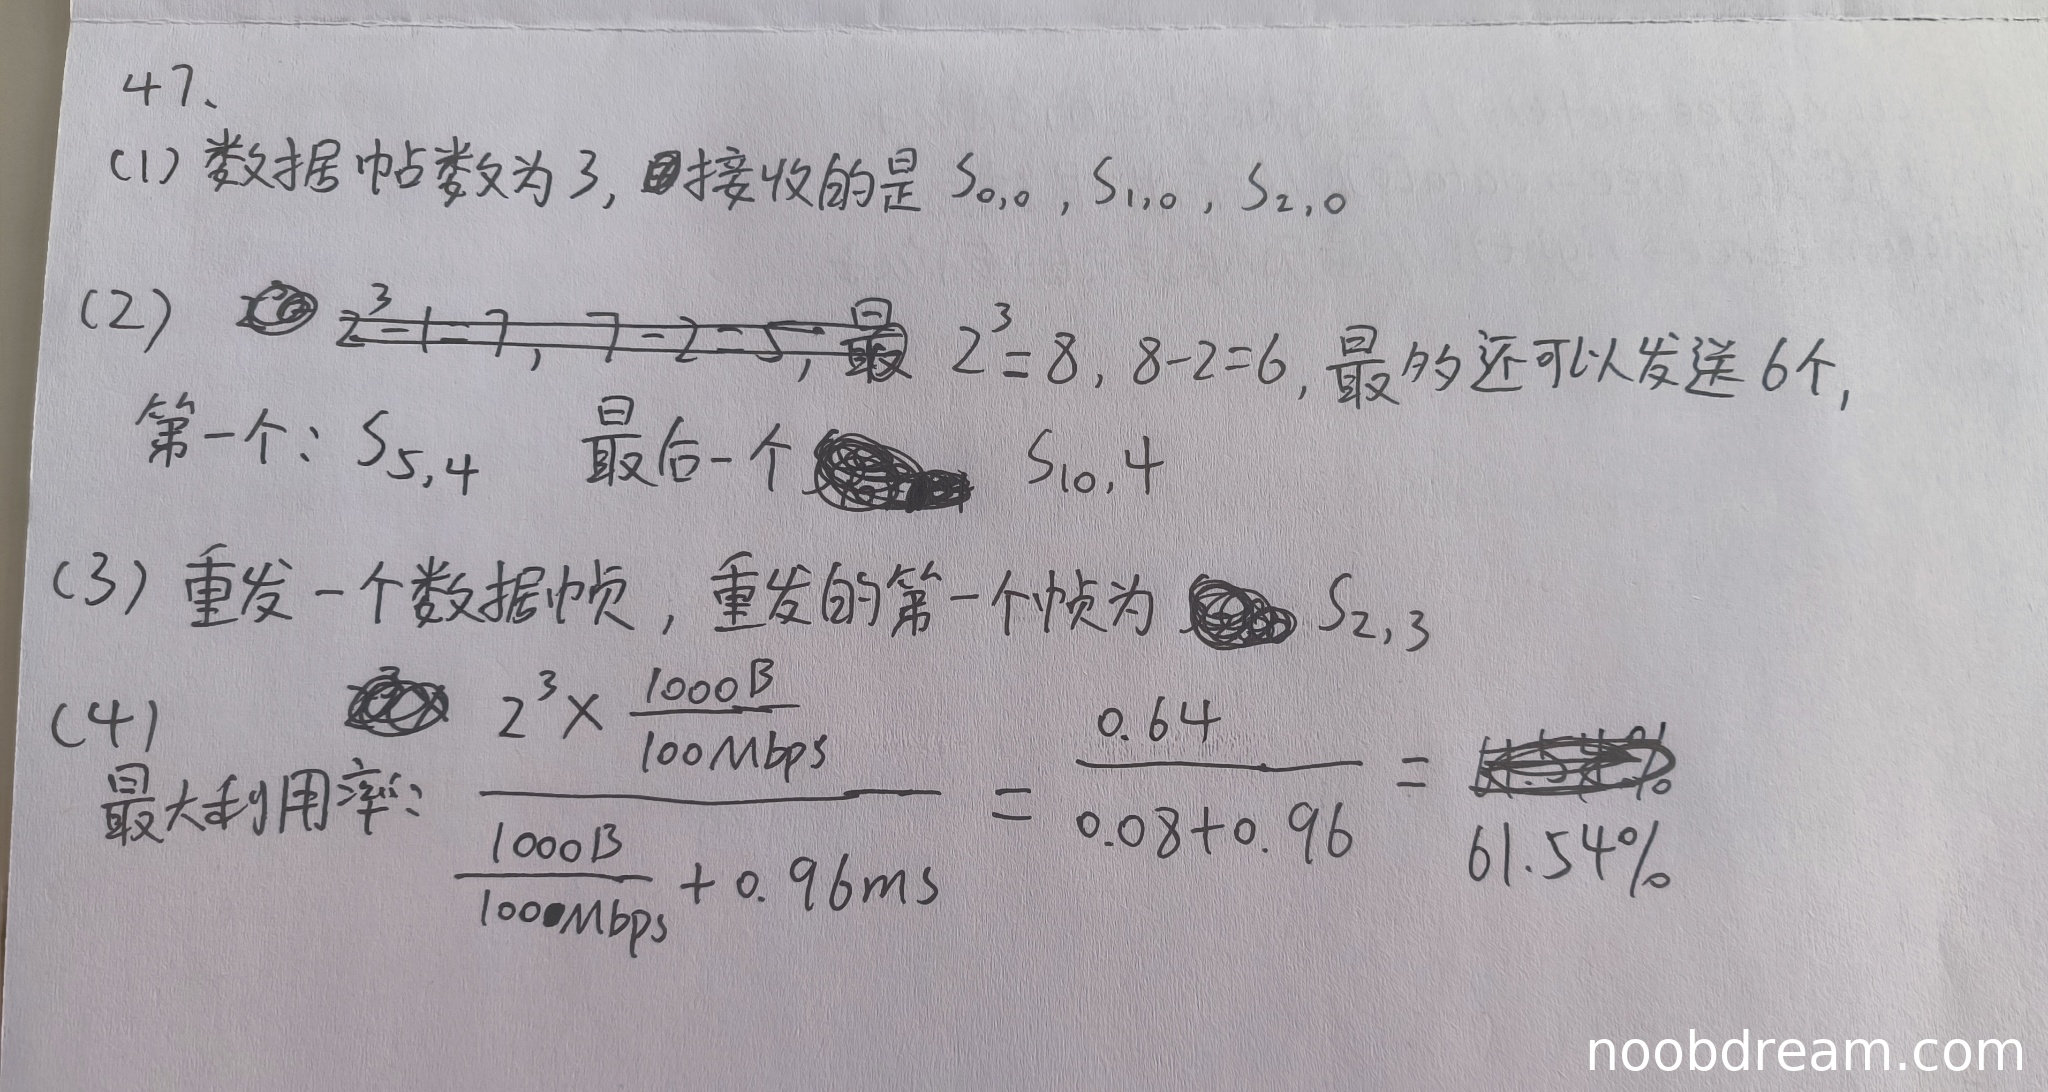 47、
(1) 数据帖数为3, 接收的是 S0,0 , S1,0 , S2,0
(2) 2³-1=7, 7-2=5, 最 2³=8, 8-2=6, 最的还可以发送6个,
第一个: S5,4 最后一个 S10,4
(3) 重发一个数据帧, 重发的第一个帧为 S2,3
(4)
最大利用率: 2³× 1000B
100Mbps
1000B
1000Mbps + 0.96ms
= 0.64
0.08+0.96
= 61.54%
noobdream.com